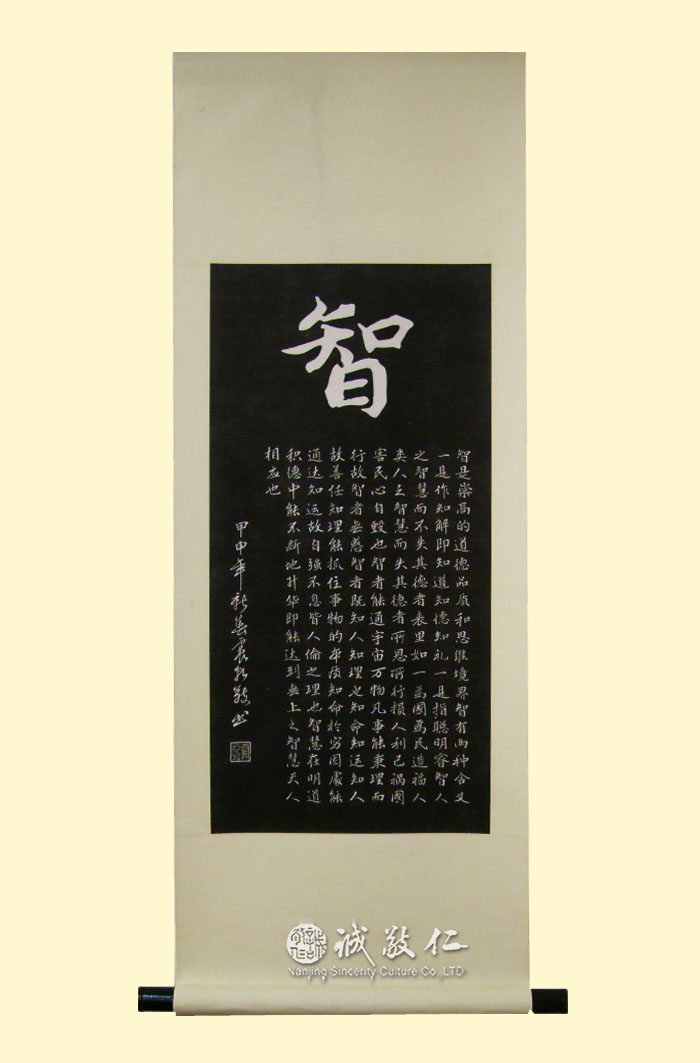 智
智是崇高的道德品质和思维境界智有两种含义
一是作知解即知道知德知礼一是指聪明睿智人
之智慧而不失其德者表里如一為國為民造福人
类人之智慧而失其德者所思所行損人利己禍國
害民心自毁也智者能通宇宙万物凡事能秉理而
行故智者無惑智者既知人知理也知命知运知人
故善任知理能抓住事物的本质知命於穷困處能
通达知运故自强不息皆人倫之理也智慧在明道
积德中能不断地升华即能达到無上之智慧天人
相应也
甲申年新春震
誠敬仁
Nanjing Sincerity Culture Co,.LTD